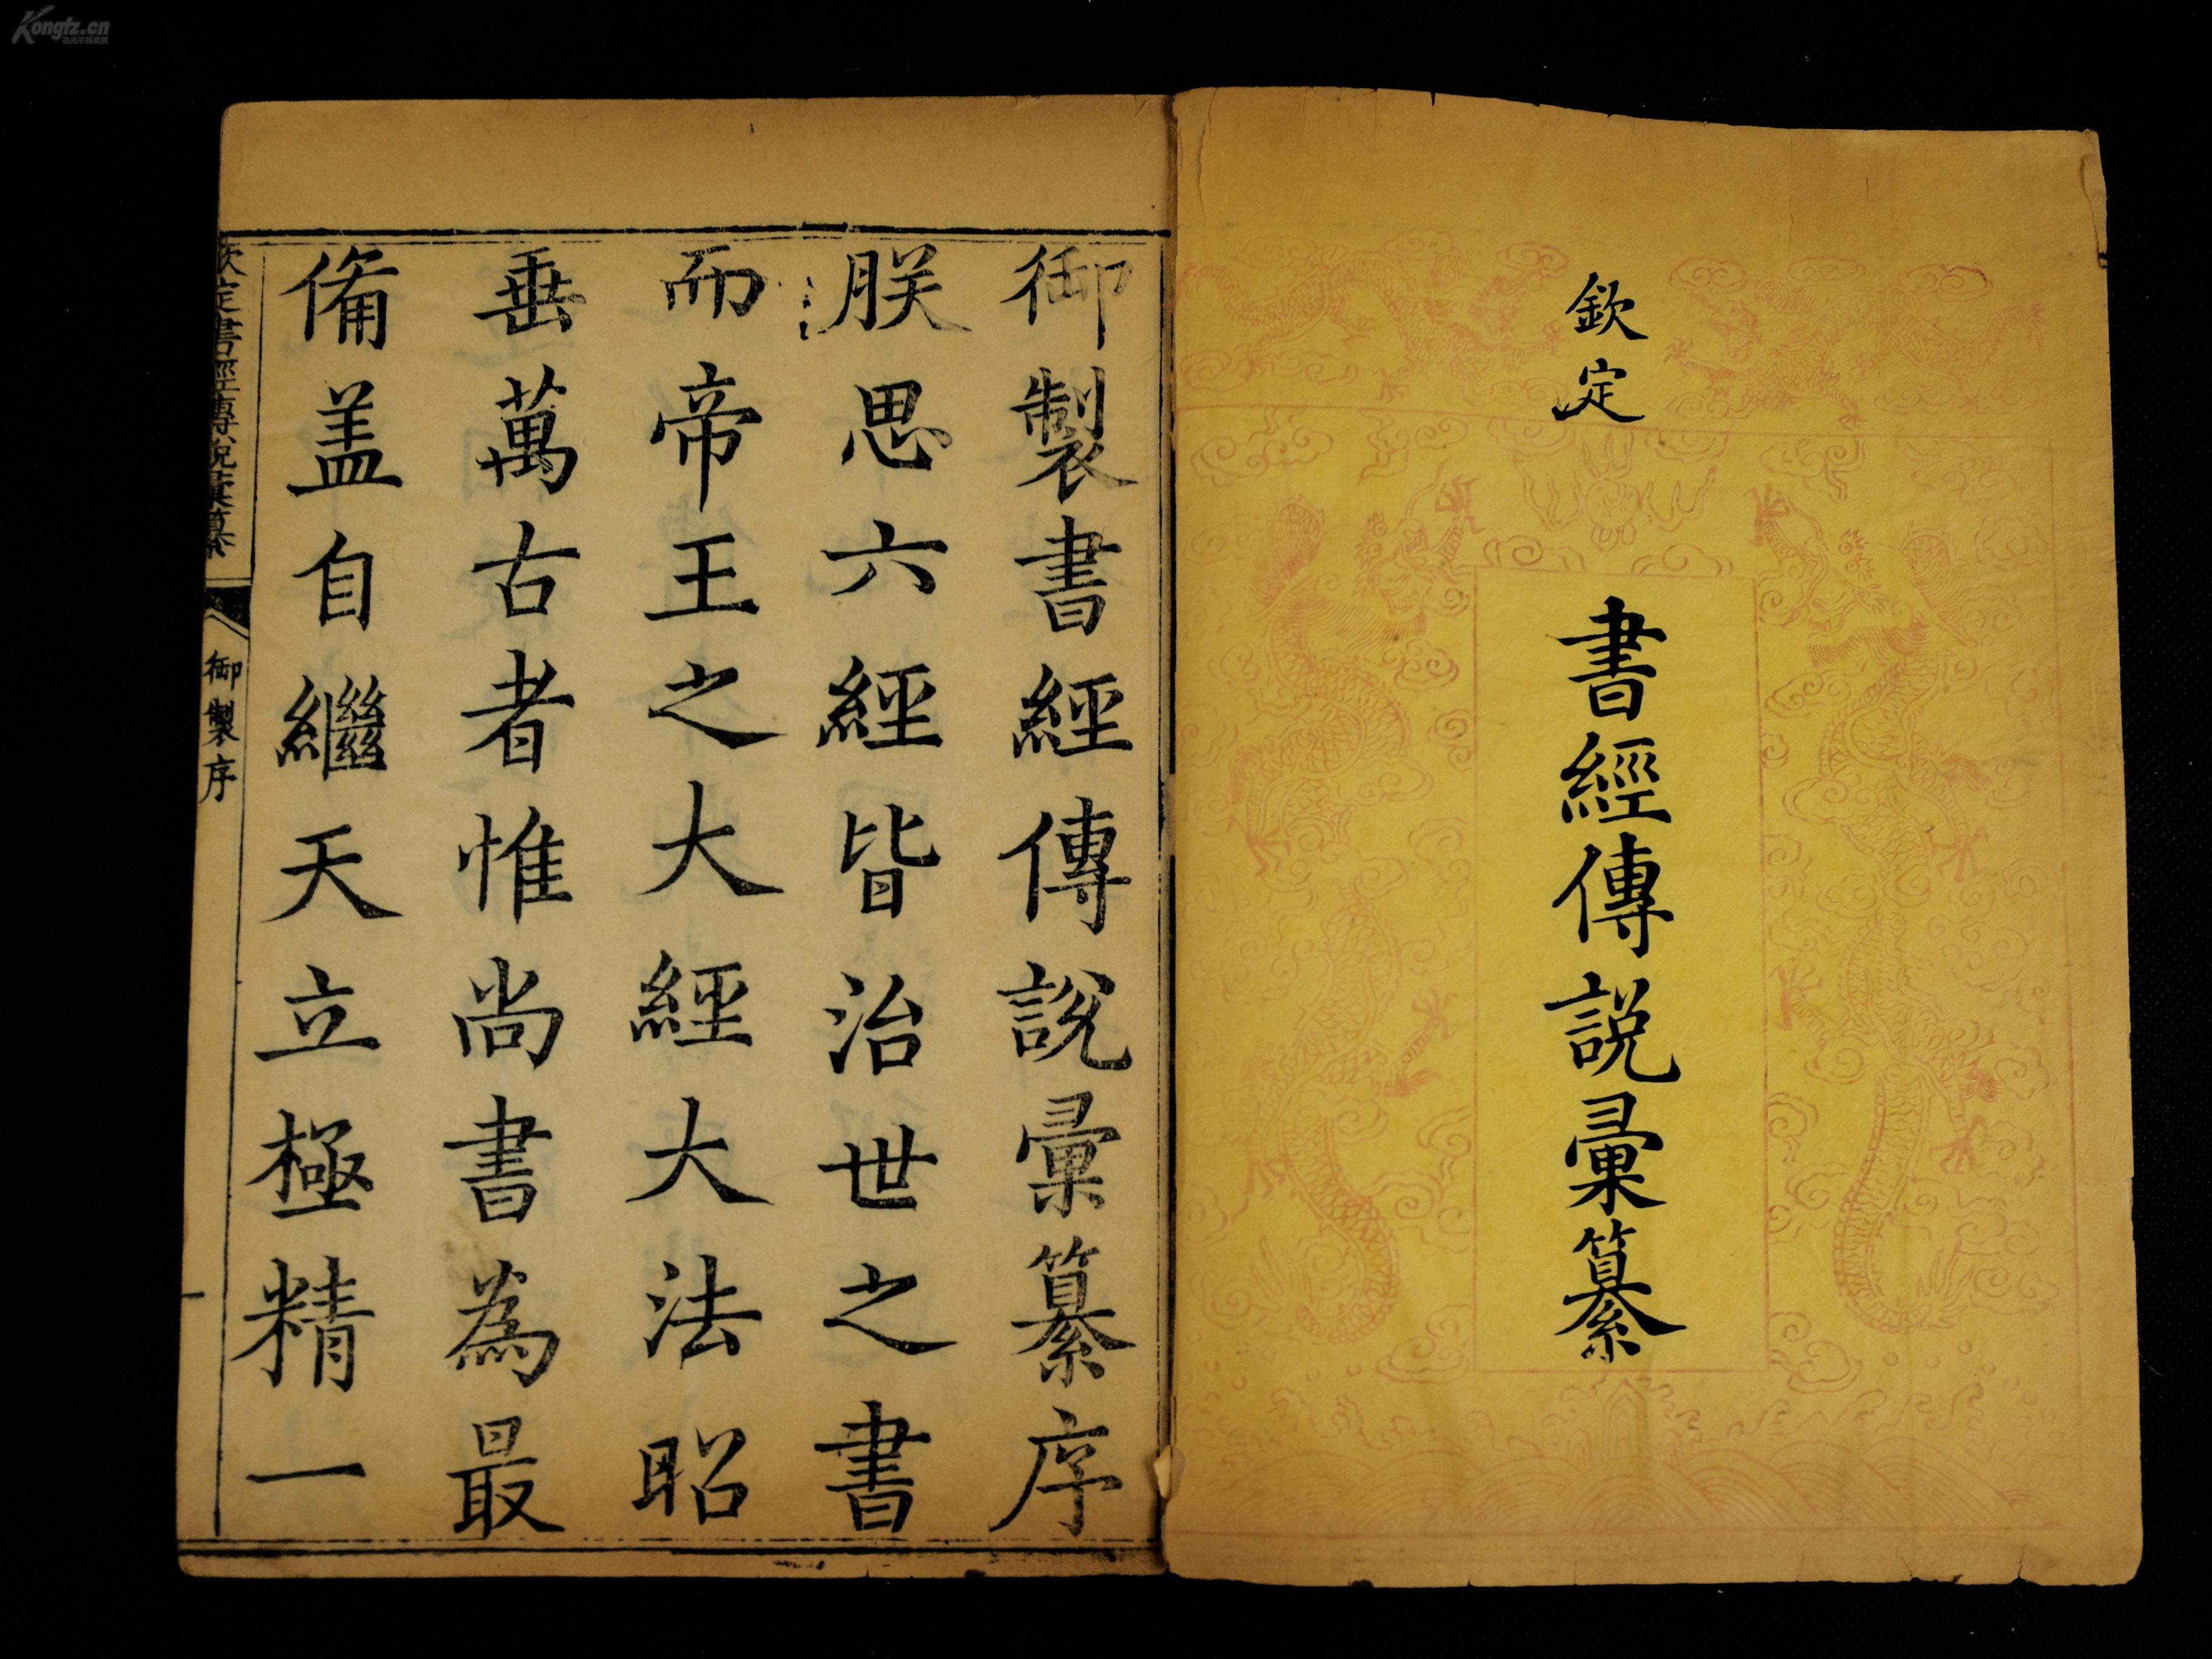 欽定
書經傳說彙纂
御製書經傳說彙纂序
朕思六經皆治世之書
而帝王之大經大法昭
垂萬古者惟尚書為最
備盖自繼天立極精一
欽定書經傳說彙纂
御製序
Kongfz.cn